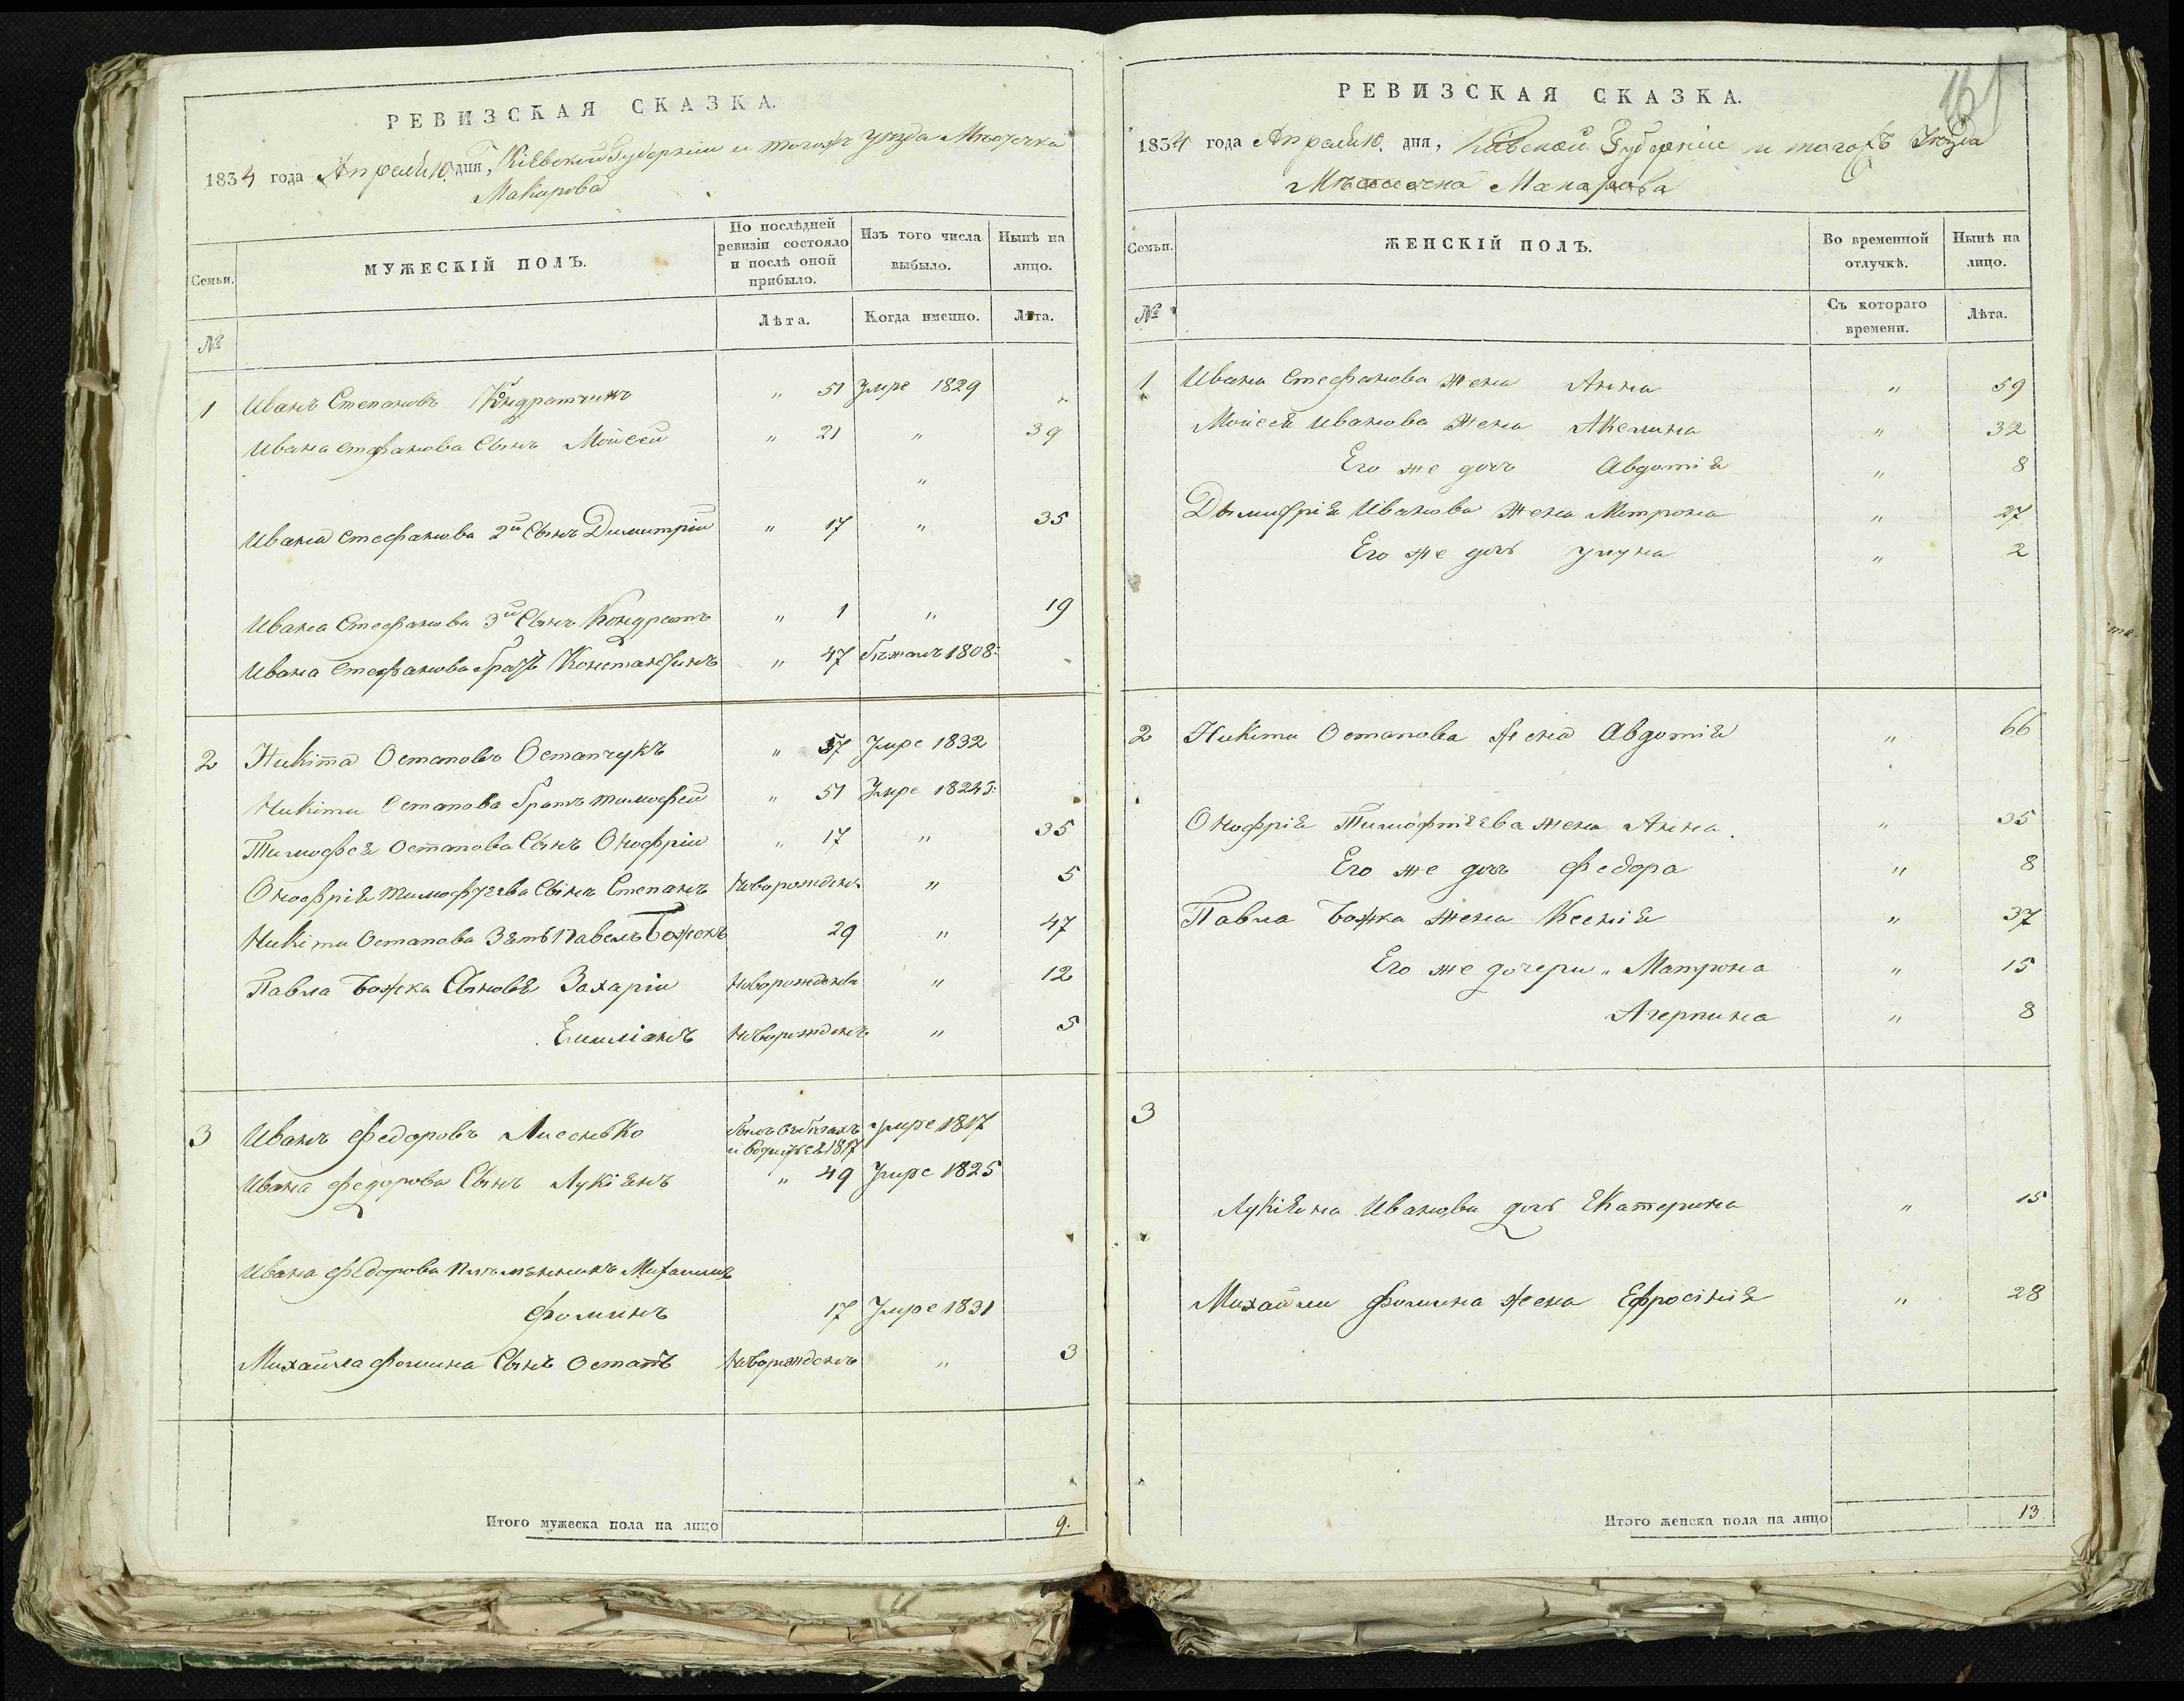 РЕВИЗСКАЯ СКАЗКА.
1834 года Апреля 10. дня, Кіевской Губерніи и тогожъ уезда Мѣстечка
Макарова
Семьи.
МУЖЕСКІЙ ПОЛЪ.
По послѣдней ревизіи состояло и послѣ оной прибыло.
Изъ того числа выбыло.
Нынѣ на лицо.
№
Лѣта.
Когда именно.
Лѣта.
1 Иванъ Степановъ Кондратчикъ " 51 Умре 1829 "
Ивана Стефанова Сынъ Мойсей " 21 " 39
"
Ивана Стефанова 2й Сынъ Димитрій " 17 " 35
Ивана Стефанова 3й Сынъ Кондратъ " 1 " 19
Ивана Стефанова братъ Константинъ " 47 бѣжалъ 1808:
2 Никита Остаповъ Остапчукъ " 57 Умре 1832
Никиты Остапова братъ Тимофей " 51 Умре
Тимофея Остапова Сынъ Онофрій " 17 " 35
Онофрія Тимофеева Сынъ Степанъ Новорожденъ " 5
Никиты Остапова Зять Павелъ Божокъ 29 " 47
Павла Божка Сыновья Захарій Новорожденъ " 12
Емиліанъ Новорожденъ " 5
3 Иванъ Федоровъ Лисенько былъ въ бегахъ Умре 1817
и 1817
Ивана Федорова Сынъ Лукіянъ " 49 Умре 1825
Ивана Федорова племянникъ Михаилъ
Фоминъ 17 Умре 1831
Михайла Фомина Сынъ Остапъ Новорожденъ " 3
Итого мужеска пола на лицо 9.
РЕВИЗСКАЯ СКАЗКА.
1834 года Апреля 10. дня, Кіевской Губерніи и тогожъ Уезда
Мѣстечка Макарова
Семьи.
ЖЕНСКІЙ ПОЛЪ.
Во временной отлучкѣ.
Нынѣ на лицо.
№
Съ котораго времени.
Лѣта.
1 Ивана Стефанова жена Анна " 59
Мойсея Иванова жена Акелина " 32
Его же дочь Авдотія " 8
Дымитрія Иванова жена Матрона " 27
Его же дочь " 2
2 Никиты Остапова жена Авдотія " 66
Онофрія Тимофтѣева жена Анна. " 35
Его же дочь Федора " 8
Павла Божка жена Ксенія " 37
Его же дочери " Матрона " 15
Агерпина " 8
3
Лукіяна Иванова дочь Екатерина " 15
Михайлы Фомина жена Ефросинія " 28
Итого женска пола на лицо 13.